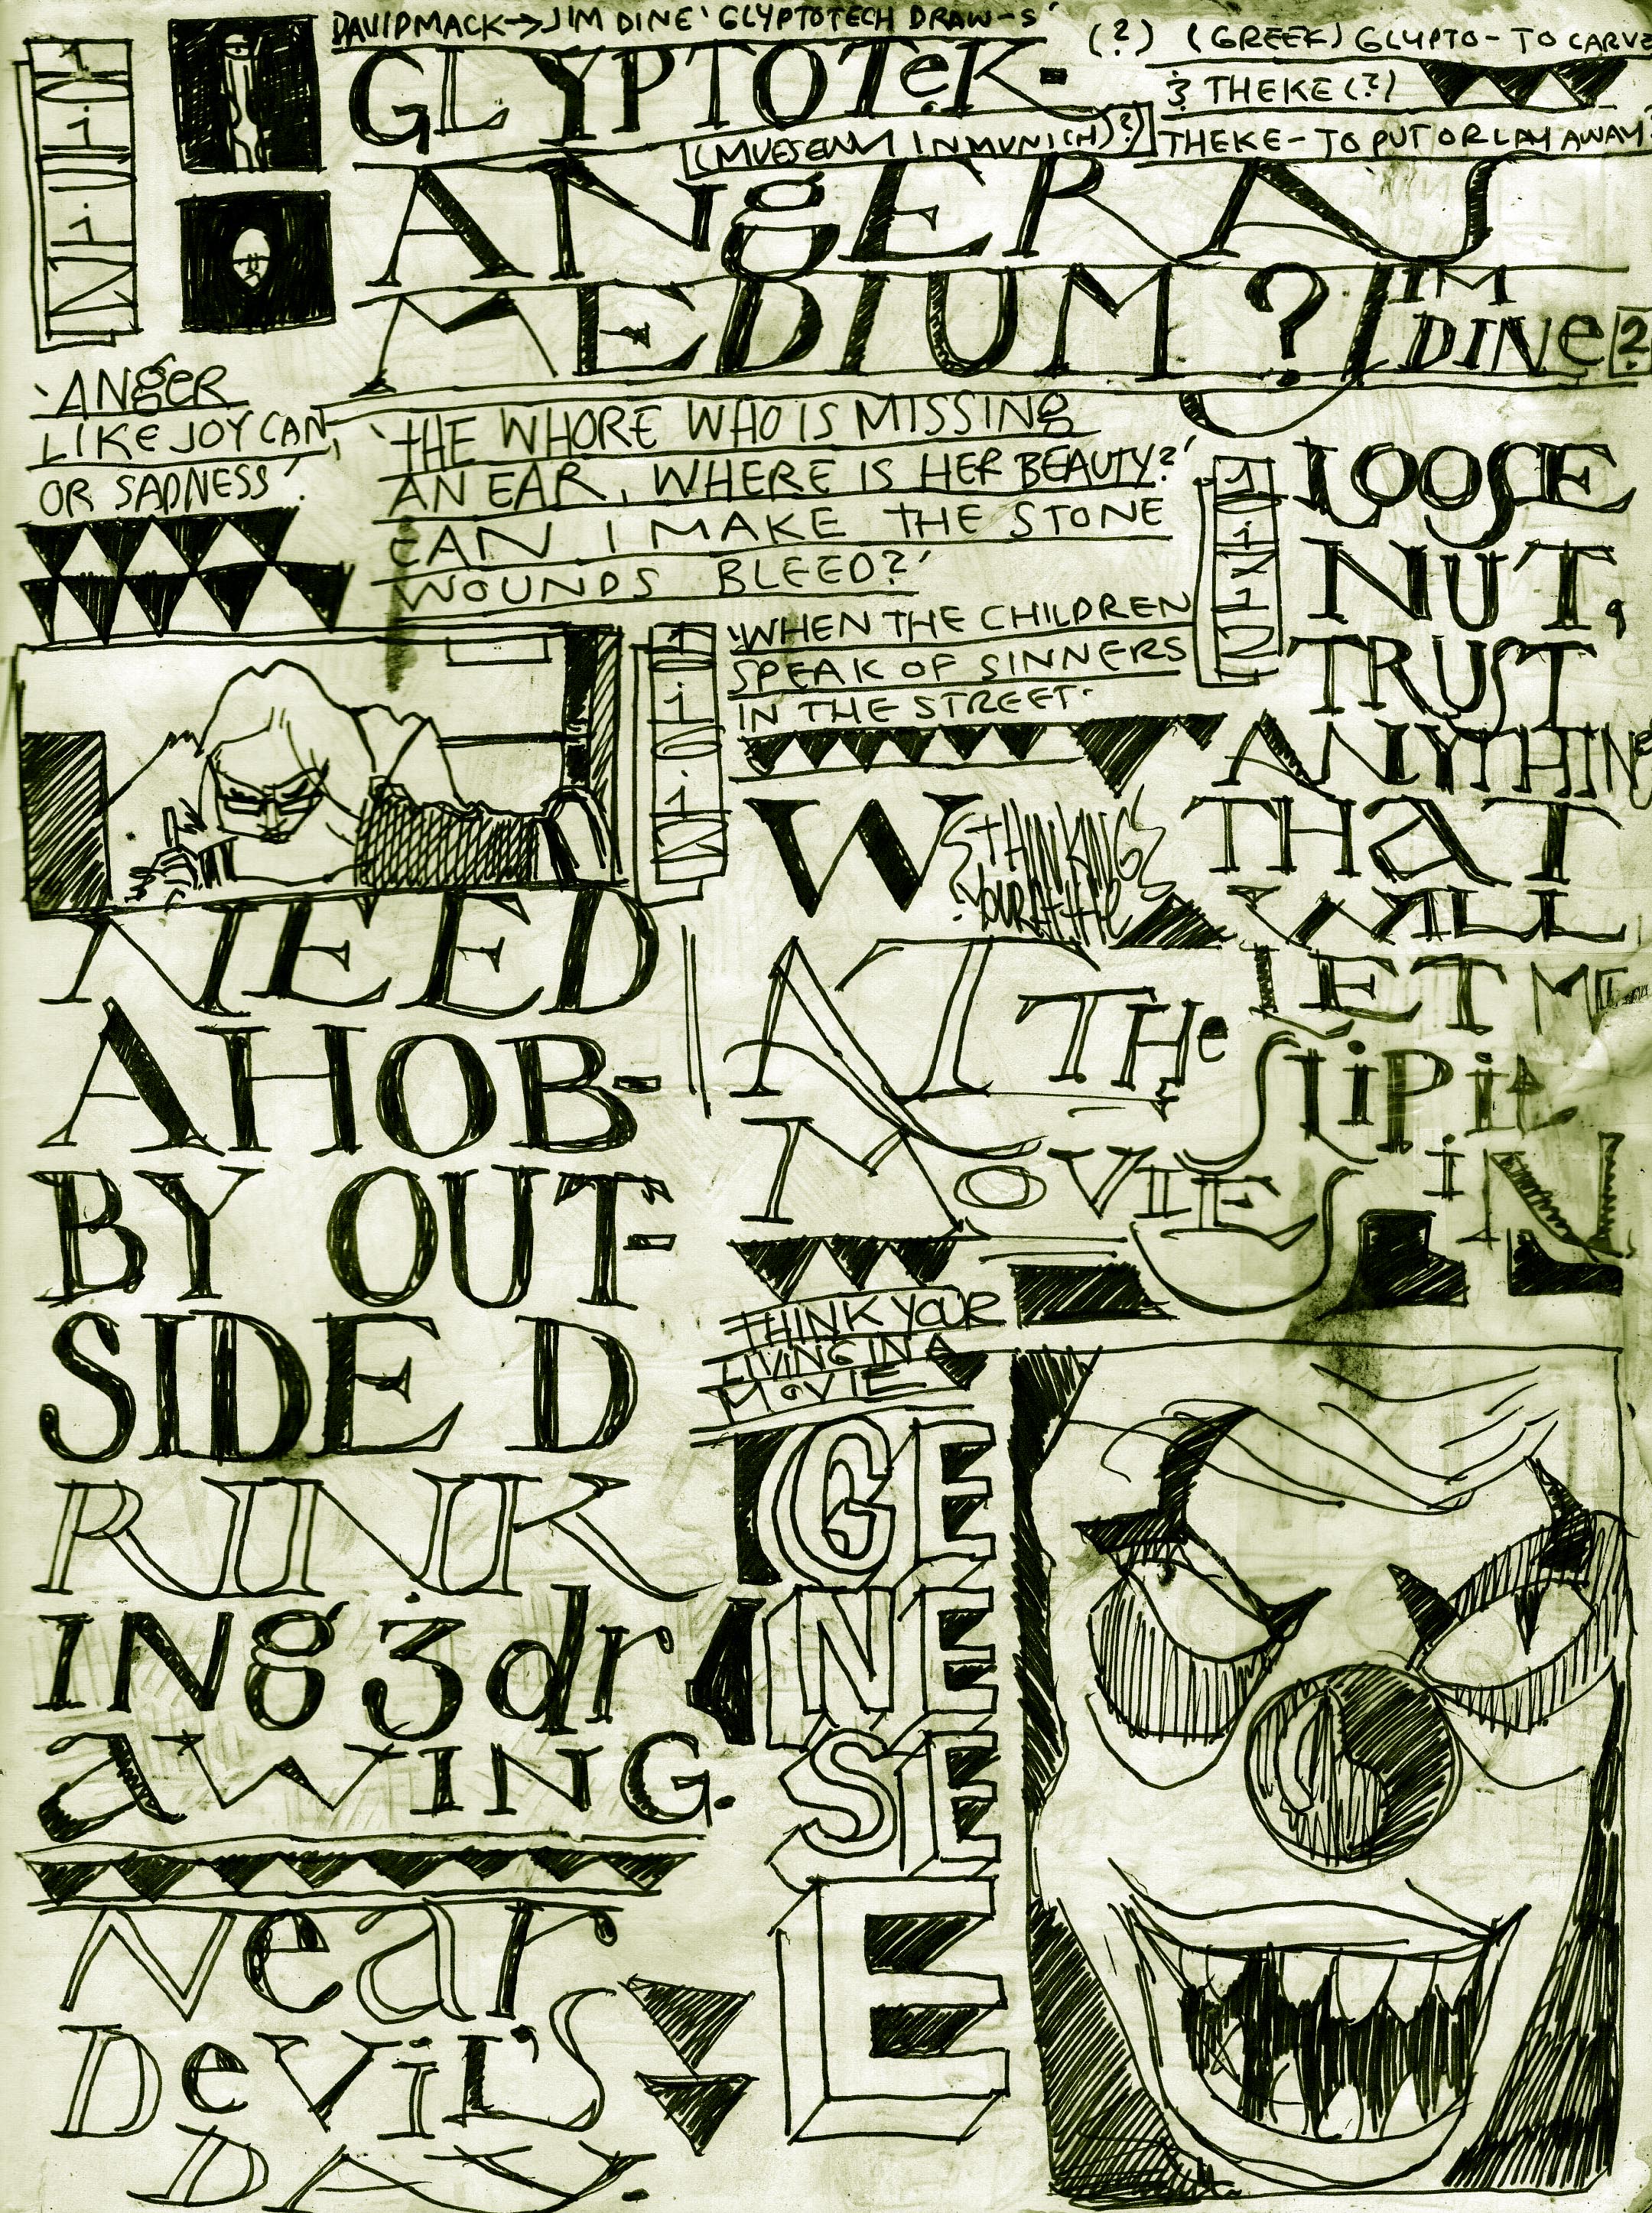 DAVID MACK → JIM DINE 'GLYPTOTECH DRAW-S'
(?) (GREEK) GLYPTO - TO CARVE
& THEKE (?)
THEKE - TO PUT OR LAY AWAY
GLYPTOTEK-
ANGER AS
MEDIUM?
JIM
DINE?
'ANGER
LIKE JOY CAN,
OR SADNESS'.
'THE WHORE WHO IS MISSING
AN EAR, WHERE IS HER BEAUTY?'
CAN I MAKE THE STONE
WOUNDS BLEED?'
'WHEN THE CHILDREN
SPEAK OF SINNERS
IN THE STREET.
LOOSE
NUT,
TRUST
ANYTHING
THAT
WILL
LET ME
SLIP it
iN
NEED
A HOB-
BY OUT-
SIDE D
RINK
INg 3 dr
aWING.
W
THINKING
YOUR AT THE
AT THE
MOVIES
THINK YOUR
LIVING IN A
MOVIE
GE
NE
SE
E
Near
DeViL'S
DAY.